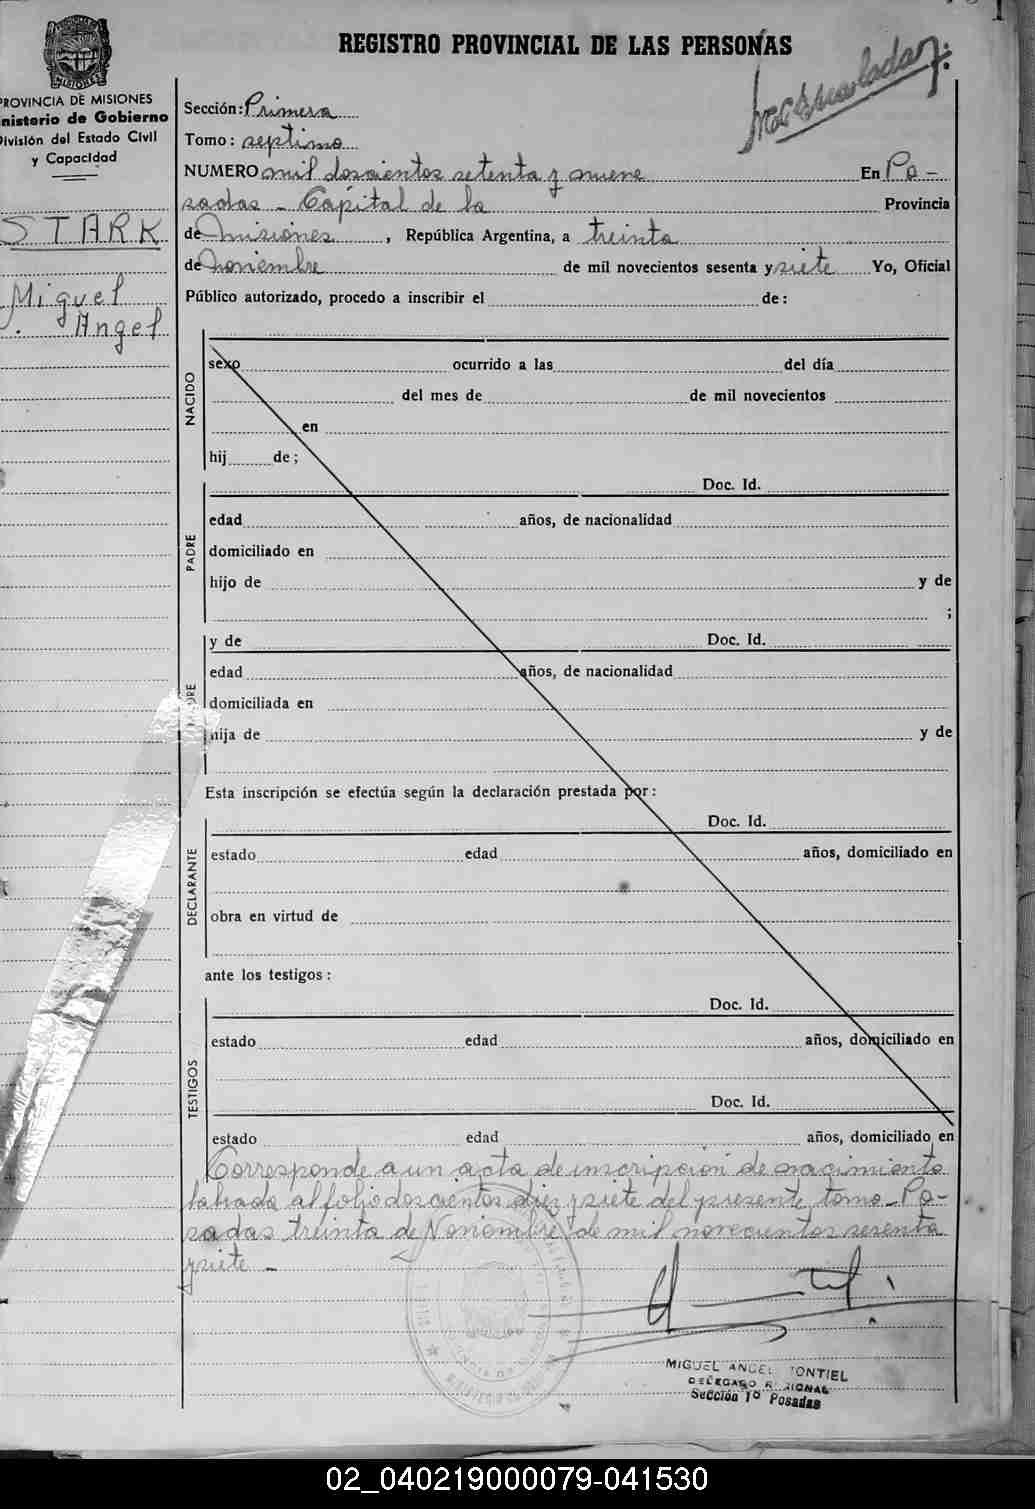 REGISTRO PROVINCIAL DE LAS PERSONAS
MISIONES
PROVINCIA DE MISIONES
nisterio de Gobierno
División del Estado Civil
y Capacidad
STARK
Miguel
Angel
Sección: Primera
Tomo: septimo
NUMERO mil doscientos setenta y nueve En Po-
sadas - Cápital de la Provincia
de Misiones, República Argentina, a treinta
de noviembre de mil novecientos sesenta y siete Yo, Oficial
Público autorizado, procedo a inscribir el de:
NACIDO
sexo ocurrido a las del día
del mes de de mil novecientos
en
hij de;
PADRE
Doc. Id.
edad años, de nacionalidad
domiciliado en
hijo de y de
;
y de Doc. Id.
edad años, de nacionalidad
domiciliada en
hija de y de
Esta inscripción se efectúa según la declaración prestada por:
DECLARANTE
Doc. Id.
estado edad años, domiciliado en
obra en virtud de
ante los testigos:
TESTIGOS
Doc. Id.
estado edad años, domiciliado en
Doc. Id.
estado edad años, domiciliado en
Corresponde a un acta de inscripción de nacimiento
labrada al folio doscientos diez y siete del presente tomo - Po-
sadas treinta de Noviembre de mil novecientos sesenta
y siete -
MIGUEL ANGEL MONTIEL
DELEGADO REGIONAL
Sección 1º Posadas
02_040219000079-041530